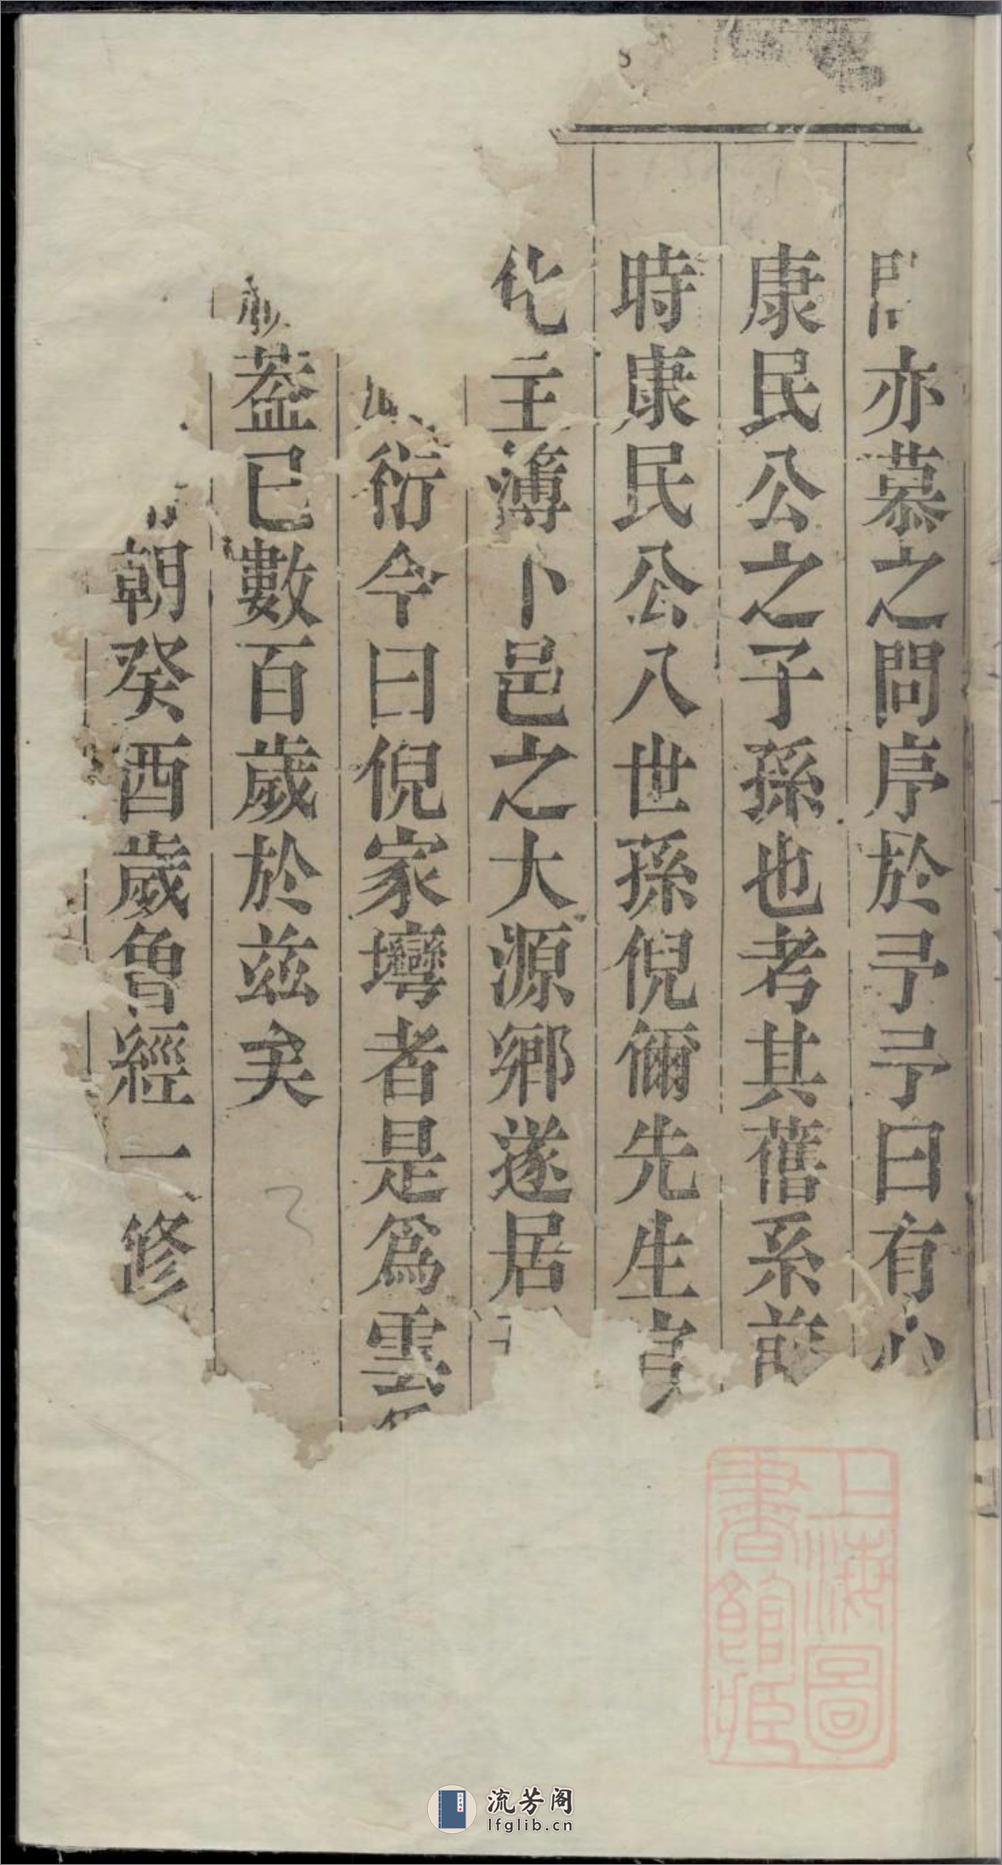 亦慕之問序於予予曰有心
康民公之子孫也考其舊系詳
時康民公八世孫倪儞先生官
化主簿卜邑之大源鄉遂居
衍今曰倪家壪者是爲雲
蓋已數百歲於茲矣
朝癸酉歲魯經一修
上海圖書館藏
流芳阁
lfglib.cn